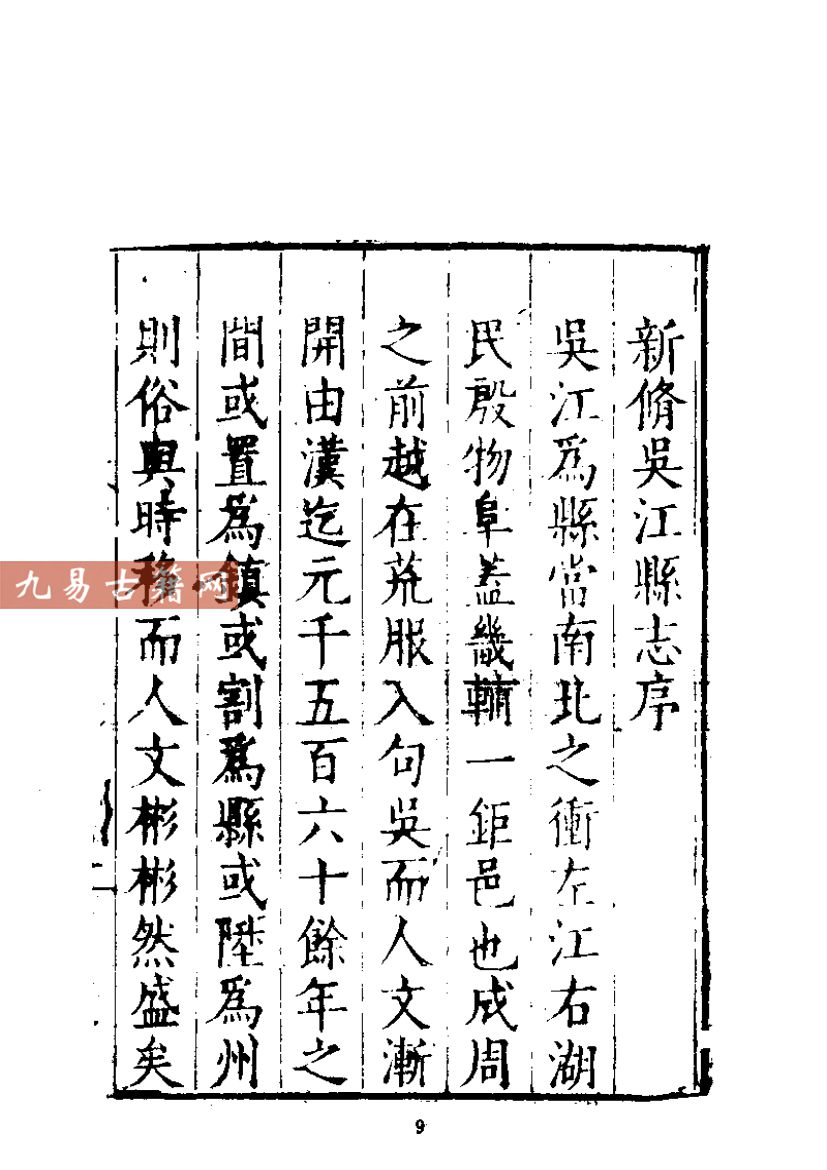 新脩吳江縣志序
吳江爲縣當南北之衝左江右湖
民殷物阜蓋畿輔一鉅邑也成周
之前越在荒服入句吳而人文漸
開由漢迄元千五百六十餘年之
間或置爲鎮或割爲縣或陞爲州
則俗與時移而人文彬彬然盛矣
二
九易古籍网
9